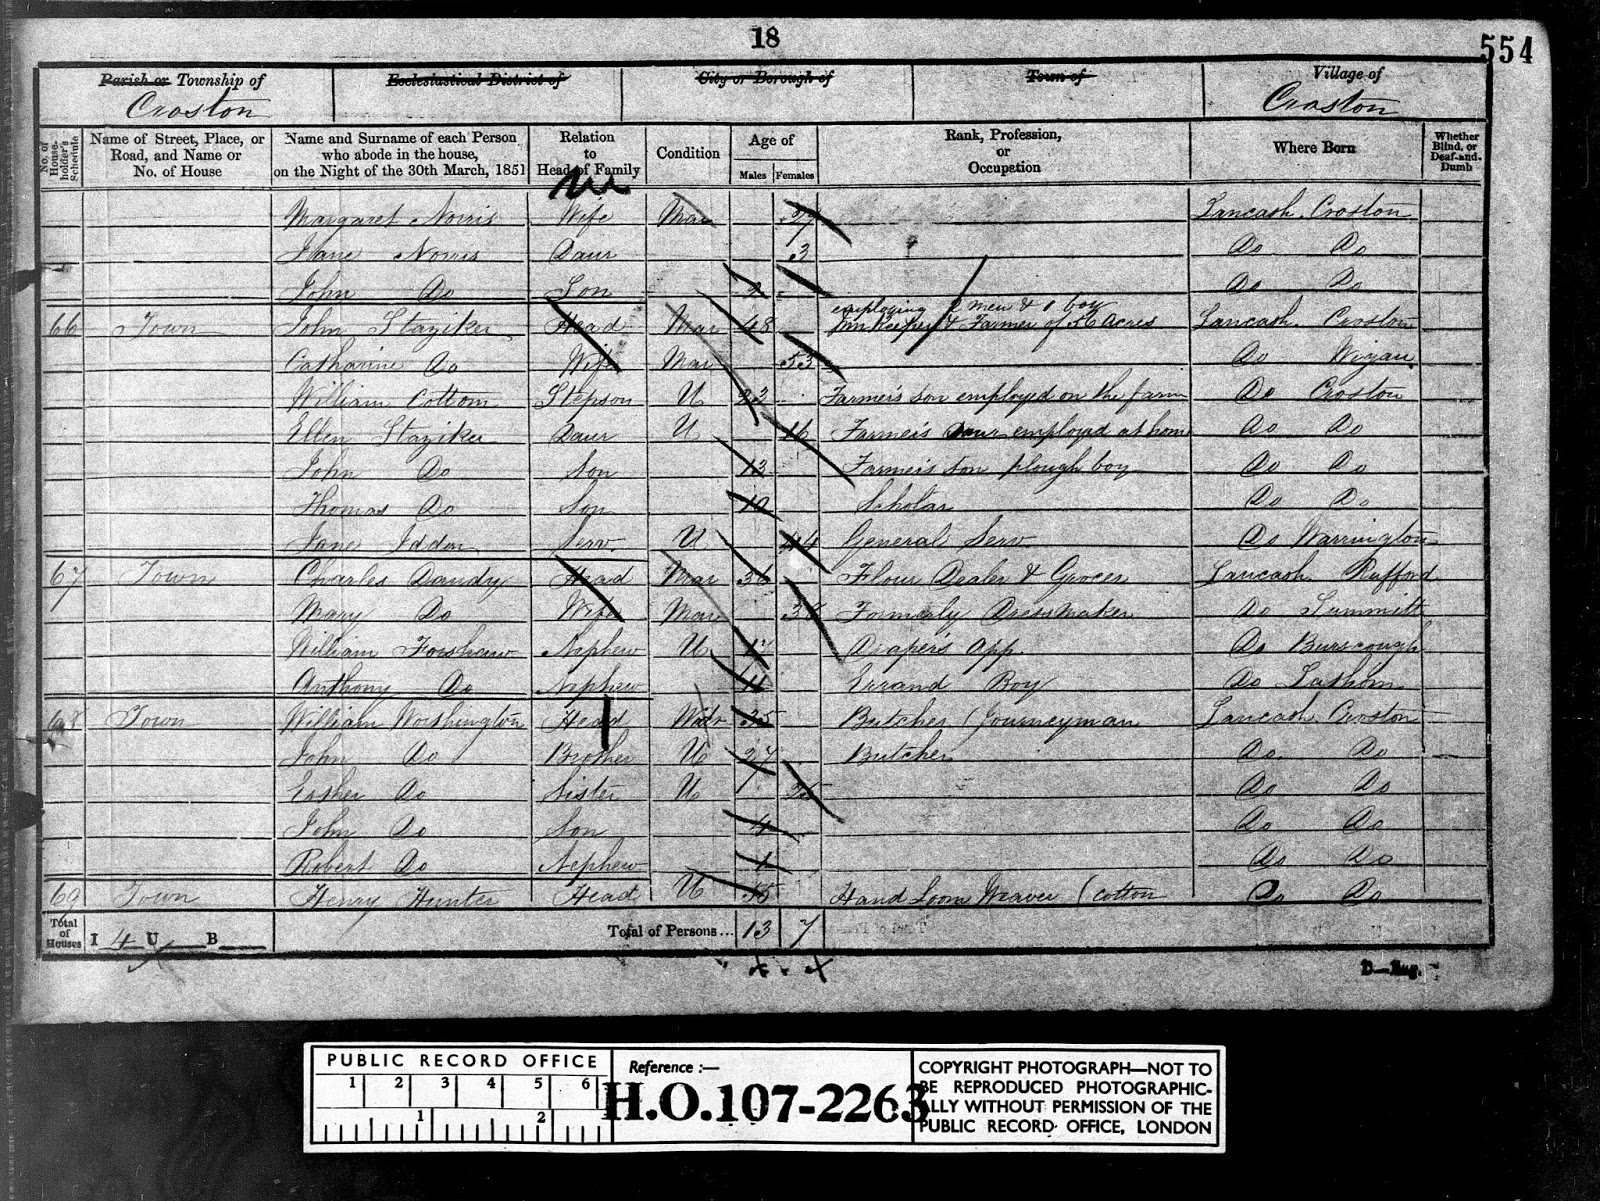 18
554
Parish or Township of
Ecclesiastical District of
City or Borough of
Town of
Village of
Croston
Croston
No. of House-holder's Schedule
Name of Street, Place, or Road, and Name or No. of House
Name and Surname of each Person who abode in the house, on the Night of the 30th March, 1851
Relation to Head of Family
Condition
Age of
Males Females
Rank, Profession, or Occupation
Where Born
Whether Blind, or Deaf-and-Dumb
Margaret Norris Wife Mar Lancash. Croston
Jane Norris Daur 3 Do Do
John Do Son Do Do
employing 2 men & 1 boy
66 Town John Staziker Head Mar 48 Inn Keeper & Farmer of 56 Acres Lancash. Croston
Catharine Do Wife Mar 53 Do Wigan
William Cottom Stepson U 23 Farmer's son employed on the farm Do Croston
Ellen Staziker Daur U 16 Farmer's Daur employed at home Do Do
John Do Son 13 Farmer's son plough boy Do Do
Thomas Do Son 10 Scholar Do Do
Jane Iddon Serv. U 44 General Serv. Do Warrington
67 Town Charles Dandy Head Mar 36 Flour Dealer & Grocer Lancash Rufford
Mary Do Wife Mar Formerly Dressmaker Do
William Forshaw Nephew U Draper's App. Do Burscough
Anthony Do Nephew 11 Errand Boy Do Lathom
68 Town William Worthington Head Widr 35 Butcher (Journeyman Lancash. Croston
John Do Brother U 27 Butcher Do Do
Esther Do Sister U Do Do
John Do Son 4 Do Do
Robert Do Nephew 1 Do Do
69 Town Henry Hunter Head U 55 Hand Loom Weaver (cotton Do Do
Total of Houses I 4 U B
Total of Persons... 13 7
D—Eng.
PUBLIC RECORD OFFICE
1 2 3 4 5 6
1 2
Reference :—
H.O.107-2263
COPYRIGHT PHOTOGRAPH—NOT TO
BE REPRODUCED PHOTOGRAPHIC-
ALLY WITHOUT PERMISSION OF THE
PUBLIC RECORD OFFICE, LONDON